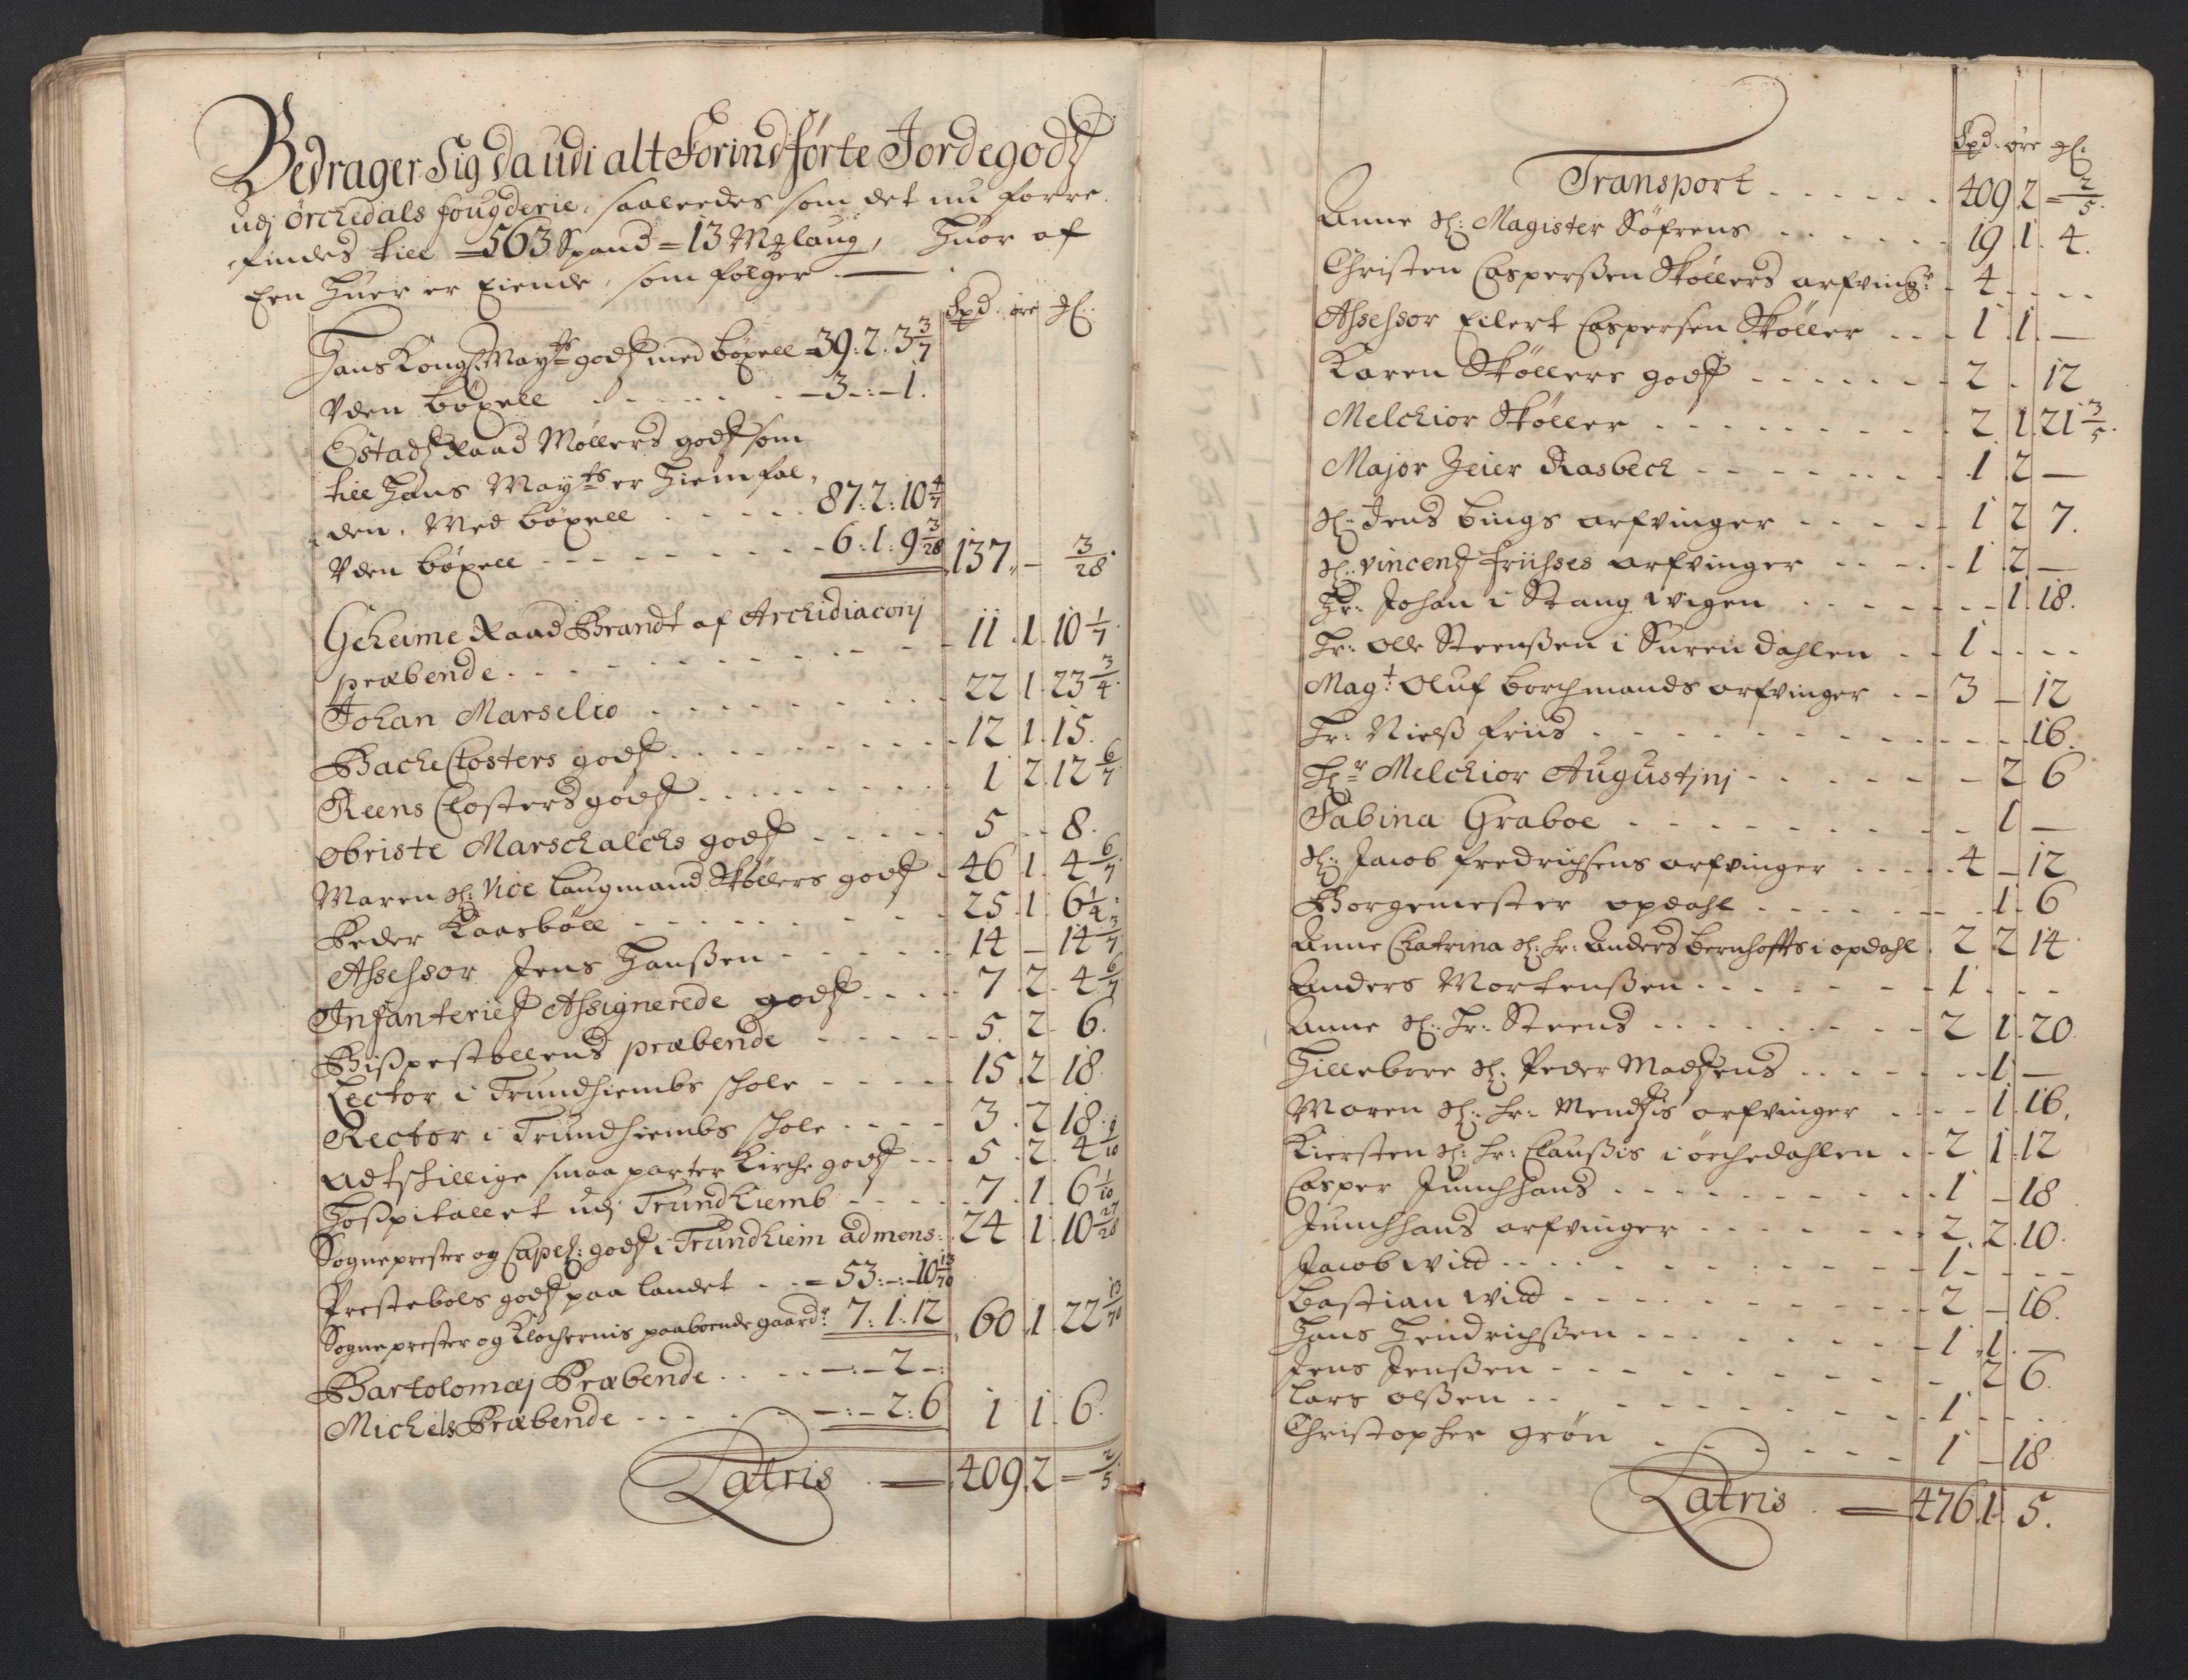 Bedrager Sig da udi alt Forindførte Jordegodz
udj Ørchedals fougderie, saaleedes som det nu forre
findes till = 563 Spand = 13 Mzlaug, Huor af
Een Huer er Eiende, som følger
Spd. øre
Hans Kongl. Mayts godz med böxell = 39:2:3 3/7
Uden böxell - 3-:-1.
Estadz Raad Møllers godz som
till Hans Mayts er Hiemfal,
den, Med böxell 87:2:10 4/7
Uden böxell 6:1:9 3/28 137 - 3/28
Geheime Raad Brandt af Archidiaconj
præbende 11 1 10 1/7
Johan Marselio 22 1 23 3/4
Bache Closters godz 12 1 15
Reens Closters godz 1 2 12 6/7
Obriste Marschalchs godz 5 - 8
Maren Sl: Vice Laugmand Skøllers godz 46 1 4 6/7
Peder Kaasbøll 25 1 6 1/4
Assessor Jens Hanßen 14 - 14 2/7
Infanteriez Assignerede godz 7 2 4 6/7
Bißpestollens præbende 5 2 6
Lector i Trundhiembs schole 15 2 18
Rector i Trundhiembs schole 3 2 18
Adtskillige smaa parter Kirche godz 5 2 4 1/10
Hospitallet udj Trundhiemb 7 1 6 1/10
Sogneprester og Capel: godz i Trundhiem ad mens: 24 1 10 27/28
Prestebols godz paa landet = 53:-:10 13/70
Sogneprester og Klochernis paaboende gaardr 7:1:12 60 1 22 13/70
Bartolomæj Præbende -:-2-:
Michels Præbende -:-2:6 1 1 6
Latris 409 2 - 2/5
Spd: øre
Transport 409 2 - 2/5
Anne Sl: Magister Söfrens 19 1 4
Christen Casperßen Skøllers arfvingr 4 - -
Assessor Eilert Caspersen Skøller 1 1 -
Karen Skøllers godz 2 - 12
Melchior Skøller 2 1 21 3/5
Major Heier Rasbech 1 2 -
Sl: Jens Bings arfvinger 1 2 7
Sl: Vincentz Friises arfvinger 1 2 -
Hr: Johan i Stangwigen - 1 18
Hr: Olle Steenßen i Surendahlen 1 - -
Magt Oluf Borchmands arfvinger 3 - 12
Hr: Nielß Friis - - 16
Hr Melchior Augustinj - 2 6
Sabina Graboe - 1 -
Sl: Jacob Fredrichsens arfvinger 4 - 12
Borgemester Opdahl - 1 6
Anne Chatrina Sl: Hr: Anders Bernhoffts i Opdahl 2 2 14
Anders Mortenßen 1 - -
Anne Sl: Hr: Steens 2 1 20
Hilleborre Sl: Peder Madzens - 1 -
Maren Sl: Hr: Mendzis arfvinger - 1 16
Kiersten Sl: Hr: Claußis i Ørchedahlen 2 1 12
Casper Junchhans 1 - 18
Junchhans arfvinger 2 2 10
Jacob Wild 1 - -
Bastian Wild 2 - 16
Hans Hendrichßen 1 1 -
Jens Jenßen - 2 6
Lars Olßen 1 - -
Christopher Grøn 1 - 18
Latris 476 1 5